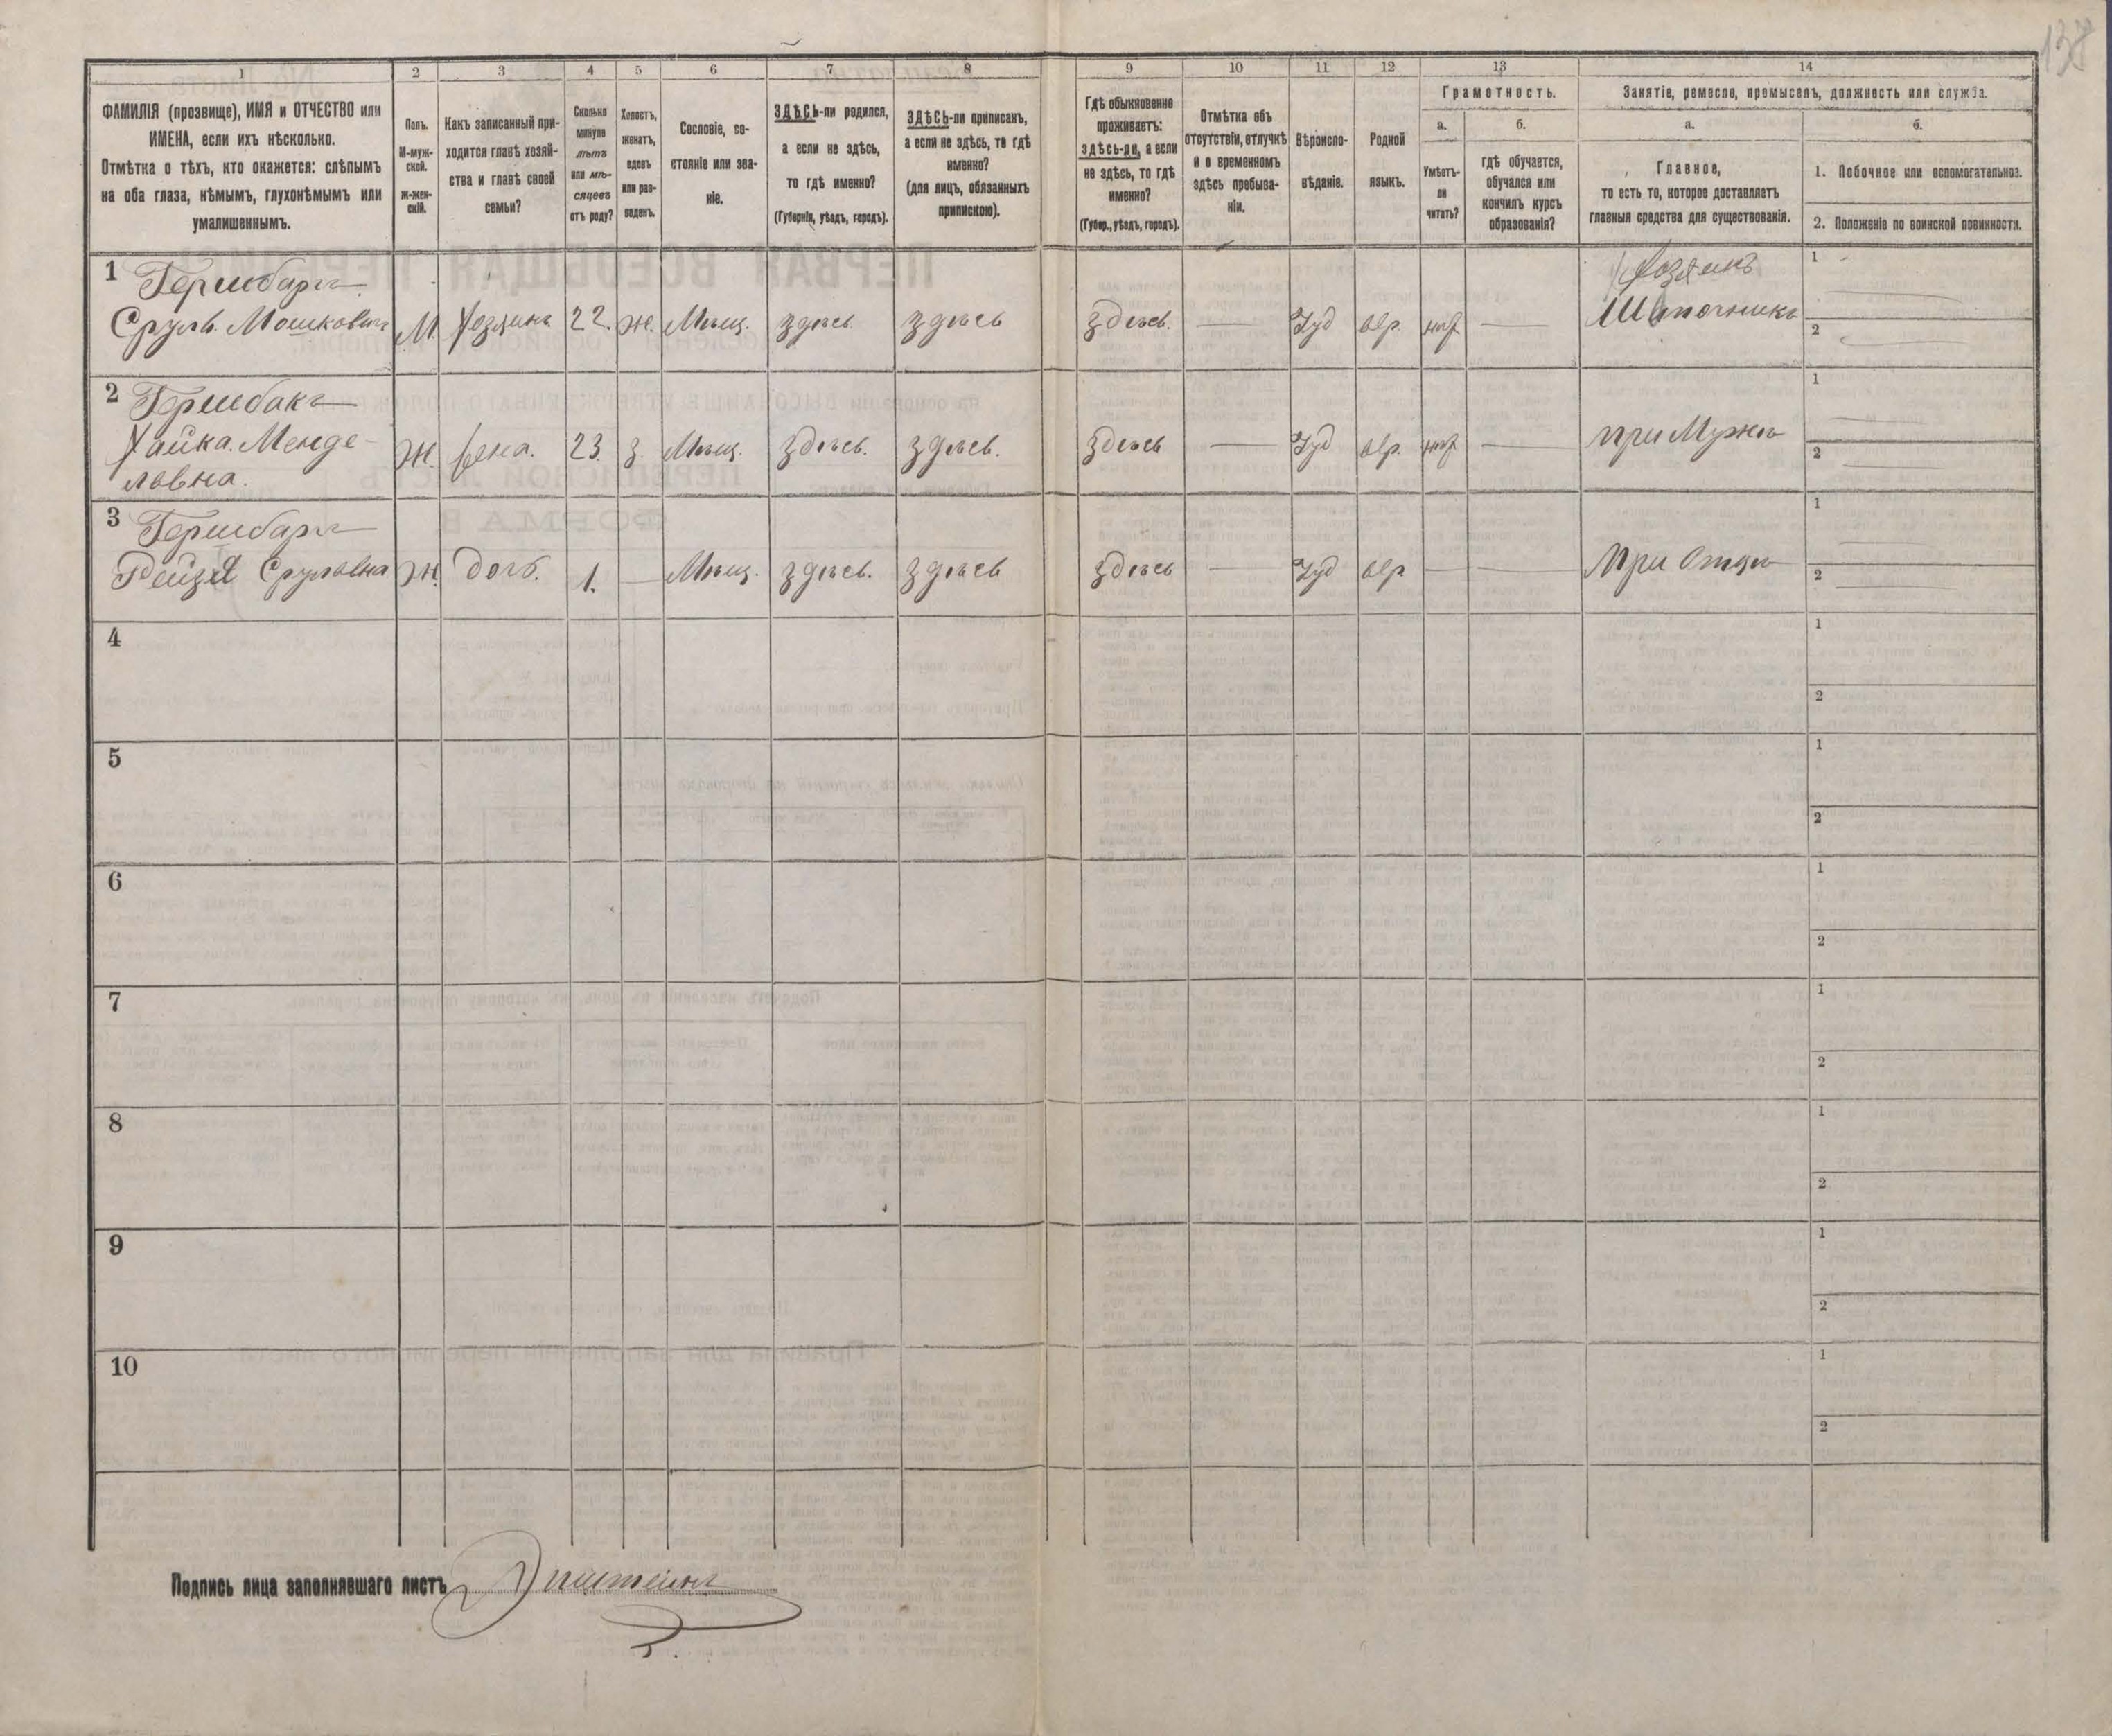 138
1 2 3 4 5 6 7 8 9 10 11 12 13 14
ФАМИЛІЯ (прозвище), ИМЯ и ОТЧЕСТВО или
ИМЕНА, если ихъ нѣсколько.
Отмѣтка о тѣхъ, кто окажется: слѣпымъ
на оба глаза, нѣмымъ, глухонѣмымъ или
умалишеннымъ.
Полъ.
М-муж-
ской.
Ж-жен-
скій.
Какъ записанный при-
ходится главѣ хозяй-
ства и главѣ своей
семьи?
Сколько
минуло
лѣтъ
или мѣ-
сяцевъ
отъ роду?
Холостъ,
женатъ,
вдовъ
или раз-
веденъ.
Сословіе, со-
стояніе или зва-
ніе.
ЗДѢСЬ-ли родился,
а если не здѣсь,
то гдѣ именно?
(Губернія, уѣздъ, городъ).
ЗДѢСЬ-ли приписанъ,
а если не здѣсь, то гдѣ
именно?
(для лицъ, обязанныхъ
припискою).
Гдѣ обыкновенно
проживаетъ:
здѣсь-ли, а если
не здѣсь, то гдѣ
именно?
(Губер., уѣздъ, городъ).
Отмѣтка объ
отсутствіи, отлучкѣ
и о временномъ
здѣсь пребыва-
ніи.
Вѣроиспо-
вѣданіе.
Родной
языкъ.
Грамотность.
а.
Умѣетъ-
ли
читать?
б.
гдѣ обучается,
обучался или
кончилъ курсъ
образованія?
Занятіе, ремесло, промыселъ, должность или служба.
а.
Главное,
то есть то, которое доставляетъ
главныя средства для существованія.
б.
1. Побочное или вспомогательное.
2. Положеніе по воинской повинности.
1 Гершбаргъ
Сруль Мошковичъ М. Хозяинъ 22. ж. Мѣщ. здѣсь здѣсь здѣсь. — Іуд евр. нѣт — Хозяинъ
Шапочникъ
1
2
2 Гершбакъ
Хайка Менде-
ловна. Ж. жена. 23. з. Мѣщ. здѣсь. здѣсь. здѣсь — Іуд евр. нѣт — при Мужѣ
1
2
3 Гершбаргъ
Рейзя Сруловна Ж. дочь. 1. — Мѣщ. здѣсь. здѣсь здѣсь — Іуд евр — — При Отцѣ
1
2
4
1
2
5
1
2
6
1
2
7
1
2
8
1
2
9
1
2
10
1
2
Подпись лица заполнявшаго листъ